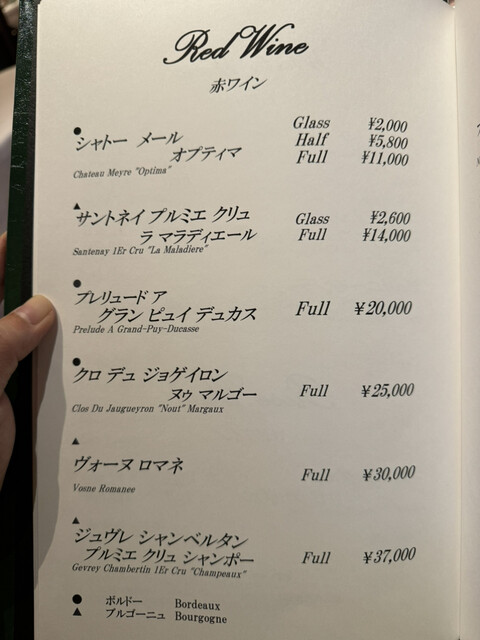 Red Wine
赤ワイン
● シャトー メール Glass ¥2,000
オプティマ Half ¥5,800
Chateau Meyre "Optima" Full ¥11,000
▲ サントネイ プルミエ クリュ Glass ¥2,600
ラ マラディエール Full ¥14,000
Santenay 1Er Cru "La Maladiere"
● プレリュード ア
グラン ピュイ デュカス Full ¥20,000
Prelude A Grand-Puy-Ducasse
● クロ デュ ジョゲイロン
ヌゥ マルゴー Full ¥25,000
Clos Du Jaugueyron "Nout" Margaux
▲ ヴォーヌ ロマネ Full ¥30,000
Vosne Romanee
▲ ジュヴレ シャンベルタン
プルミエ クリュ シャンポー Full ¥37,000
Gevrey Chambertin 1Er Cru "Champeaux"
● ボルドー Bordeaux
▲ ブルゴーニュ Bourgogne